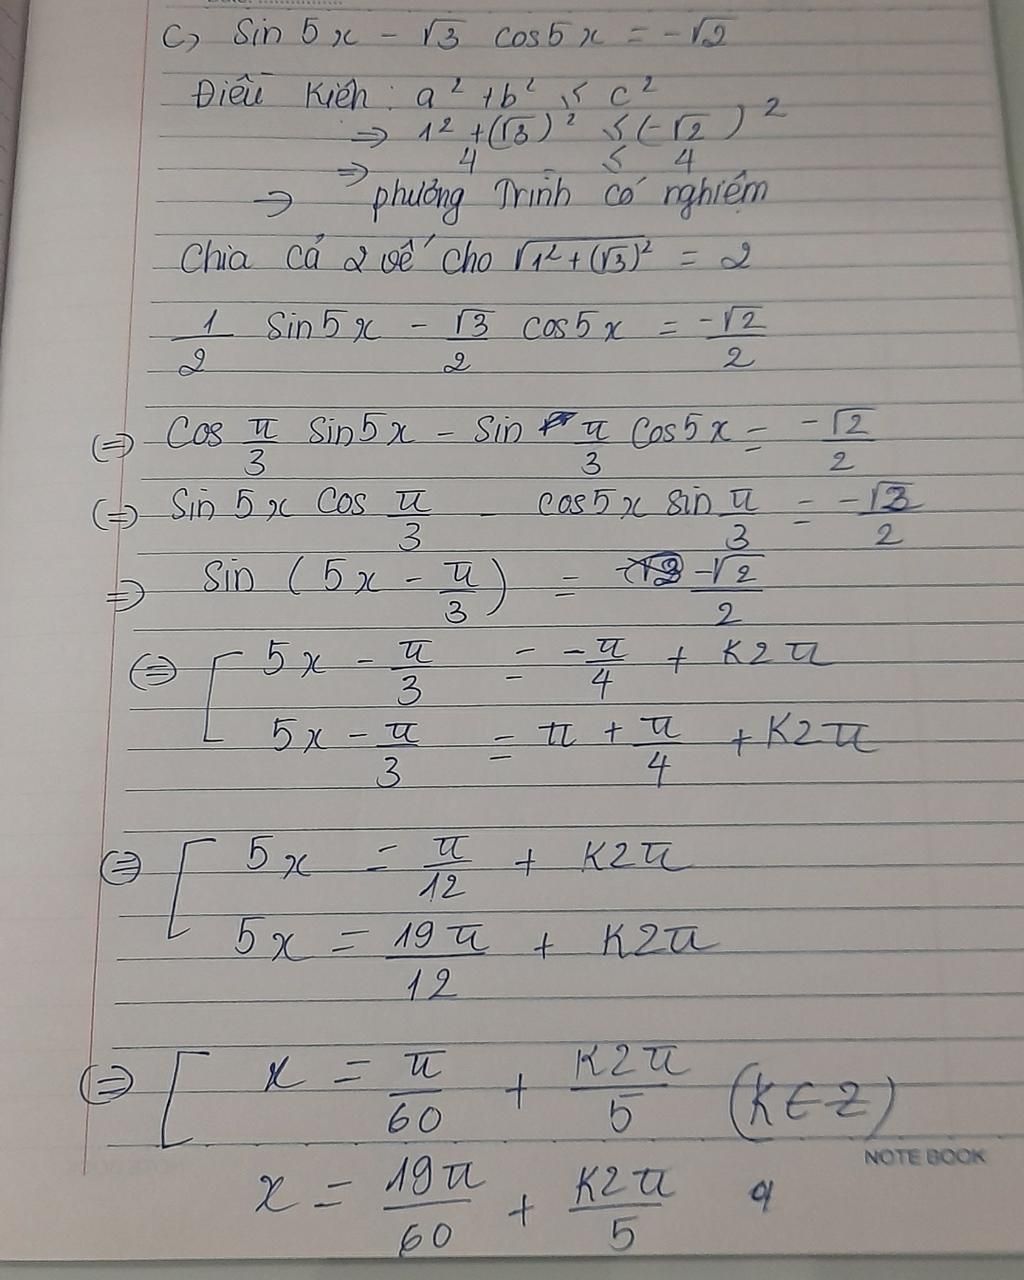 c, Sin 5x - √3 cos5x = -√2
Điều Kiện: a² + b² ≤ c²
=> 1² + (√3)² ≤ (-√2)²
=> 4 ≤ 4
-> phương Trình có nghiệm
Chia cả 2 vế cho √1² + (√3)² = 2
1/2 Sin5x - √3/2 cos5x = -√2/2
(=) Cos π/3 Sin5x - Sin π/3 Cos5x = -√2/2
(=) Sin 5x Cos π/3 - cos5x sin π/3 = -√3/2
=) Sin (5x - π/3) = -√2/2
(=) [ 5x - π/3 = -π/4 + K2π
5x - π/3 = π + π/4 + K2π
(=) [ 5x = π/12 + K2π
5x = 19π/12 + K2π
(=) [ x = π/60 + K2π/5 (K∈Z)
NOTE BOOK
x = 19π/60 + K2π/5